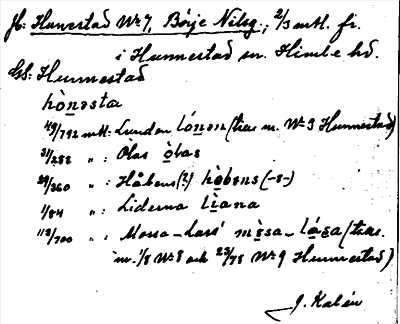 Jb: Hunnestad Nr 7, Börje Nilsg.; 2/3 mtl. fr.
i Hunnestad sn. Himle hd.
Gd: Hunnestad
hònesta
49/792 mtl: Lunden lónen (tills m. Nr 3 Hunnestad)
31/288 „ : Olas òlas
29/360 „ : Håbens (?) hòbens (-8-)
1/84 „ : Liderna lìana
113/700 „ : Mossa-Lars' mòsa-
m. 1/8 Nr 8 och 23/78 Nr 9 Hunnestad)
J. Kalén